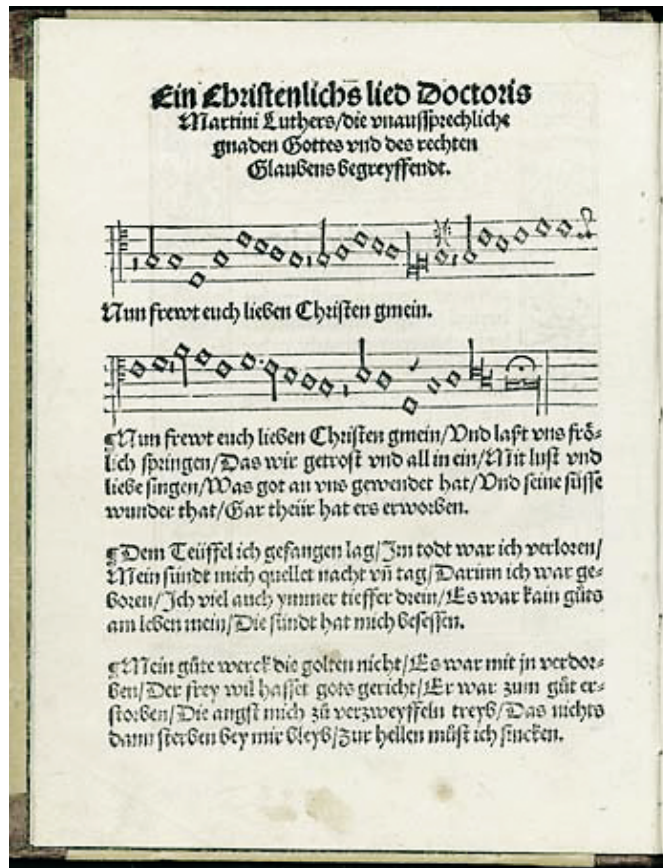 Ein Christenlichs lied Doctoris
Martini Luthers/die vnaussprechliche
gnaden Gottes vnd des rechten
Glaubens begreyffendt.
Nun frewt euch lieben Christen gmein.
¶Nun frewt euch lieben Christen gmein/Vnd laſt vns frö-
lich ſpringen/Das wir getroſt vnd all in ein/Mit luſt vnd
liebe ſingen/Was got an vns gewendet hat/Vnd ſeine ſüſſe
wunder that/Gar theür hat ers erworben.
¶Dem Teüffel ich gefangen lag/Im todt war ich verloren/
Mein ſündt mich quellet nacht vñ tag/Darinn ich war ge-
boren/Ich viel auch ymmer tieffer drein/Es war kain gůts
am leben mein/Die ſündt hat mich beſeſſen.
¶Mein gůte werck die golten nicht/Es war mit jn verdor-
ben/Der frey wil haſſet gots gericht/Er war zum gůt er-
ſtorben/Die angſt mich zů verzweyffeln treyb/Das nichts
dann ſterben bey mir bleyb/Zur hellen můſt ich ſincken.